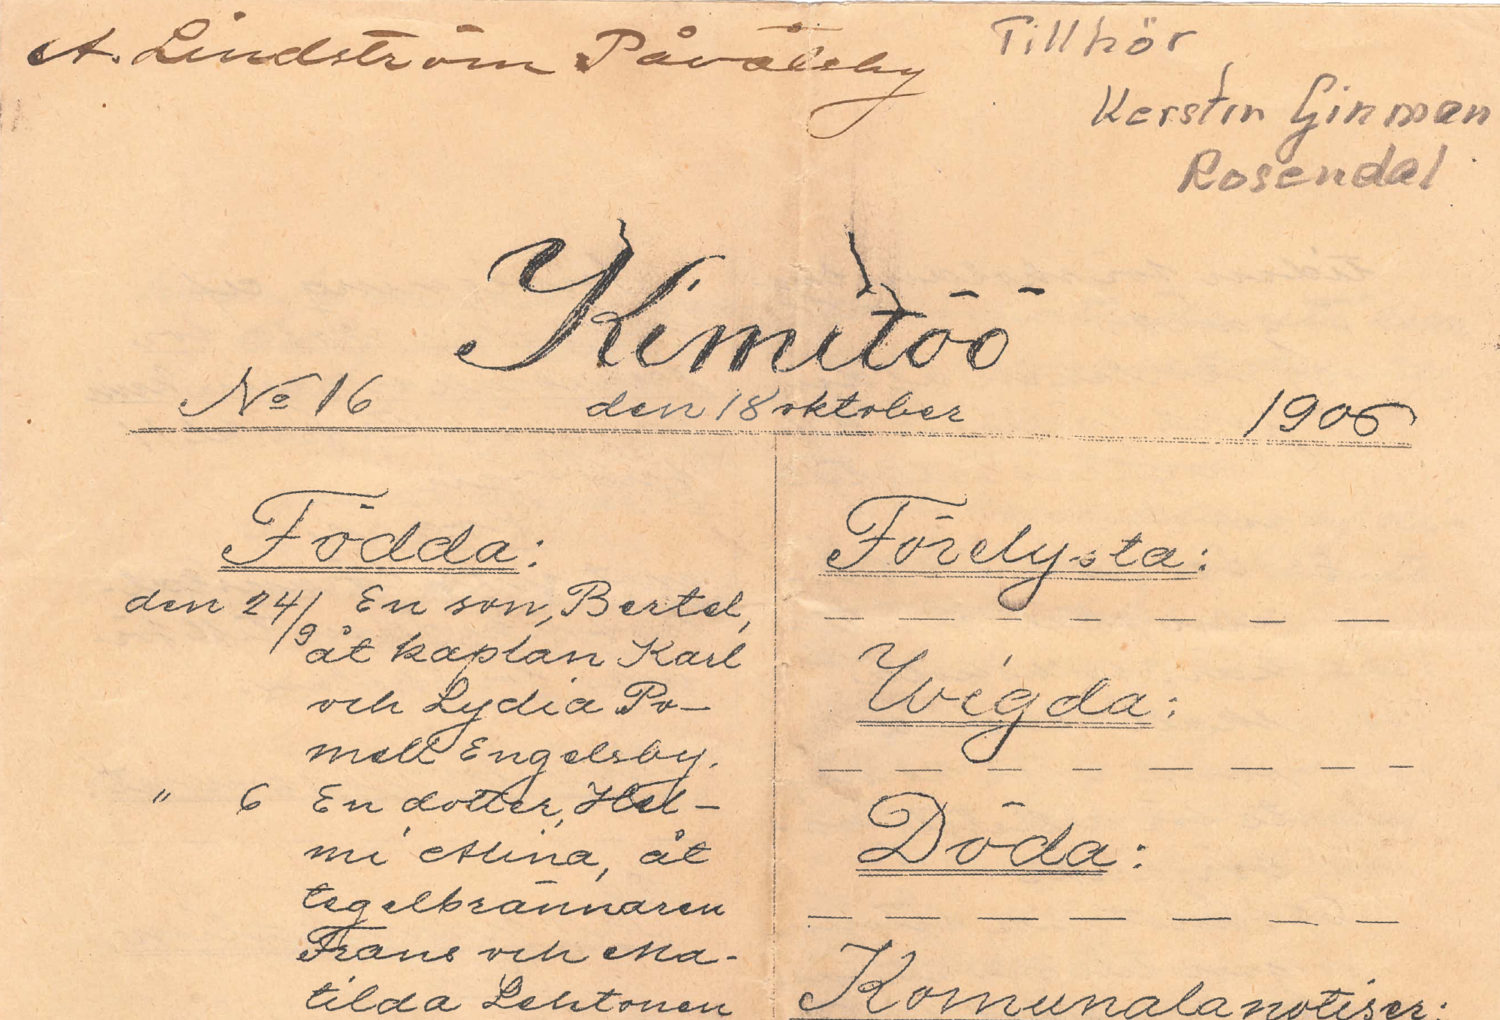 A. Lindström Påvalsby
Tillhör
Kerstin Ginman
Rosendal
Kimitöö
No 16 den 18 oktober 1906
Födda:
den 24/9 En son, Bertel,
åt kaplan Karl
och Lydia Po-
mell Engelsby.
" 6 En dotter, Hel-
mi Alina, åt
tegelbrännaren
Frans och Ma-
tilda Lehtonen
Förelysta:
Wigda:
Döda:
Komunala notiser: